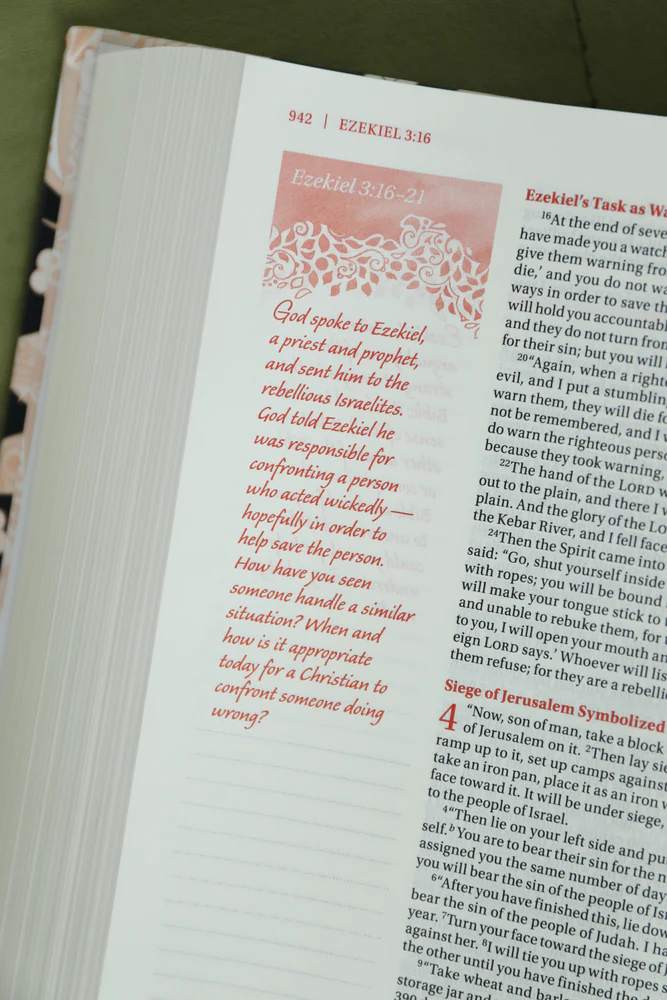 942 | EZEKIEL 3:16
Ezekiel 3:16–21
God spoke to Ezekiel,
a priest and prophet,
and sent him to the
rebellious Israelites.
God told Ezekiel he
was responsible for
confronting a person
who acted wickedly —
hopefully in order to
help save the person.
How have you seen
someone handle a similar
situation? When and
how is it appropriate
today for a Christian to
confront someone doing
wrong?
Ezekiel's Task as Wa
16At the end of seve
have made you a watch
give them warning fro
die,' and you do not wa
ways in order to save th
will hold you accountab
and they do not turn from
for their sin; but you will
20"Again, when a righte
evil, and I put a stumbling
warn them, they will die fo
not be remembered, and I w
do warn the righteous perso
because they took warning,
22The hand of the LORD w
out to the plain, and there I w
plain. And the glory of the LO
the Kebar River, and I fell face
24Then the Spirit came into
said: "Go, shut yourself inside
with ropes; you will be bound
will make your tongue stick to
and unable to rebuke them, for
to you, I will open your mouth an
eign LORD says.' Whoever will lis
them refuse; for they are a rebelli
Siege of Jerusalem Symbolized
4 "Now, son of man, take a block
of Jerusalem on it. 2Then lay sie
ramp up to it, set up camps against
take an iron pan, place it as an iron w
face toward it. It will be under siege,
to the people of Israel.
4"Then lie on your left side and pu
self.b You are to bear their sin for the n
assigned you the same number of day
you will bear the sin of the people of Is
6"After you have finished this, lie dow
bear the sin of the people of Judah. I ha
year. 7Turn your face toward the siege of
against her. 8I will tie you up with ropes s
the other until you have finished the
9"Take wheat and barl
storage jar and
390 da